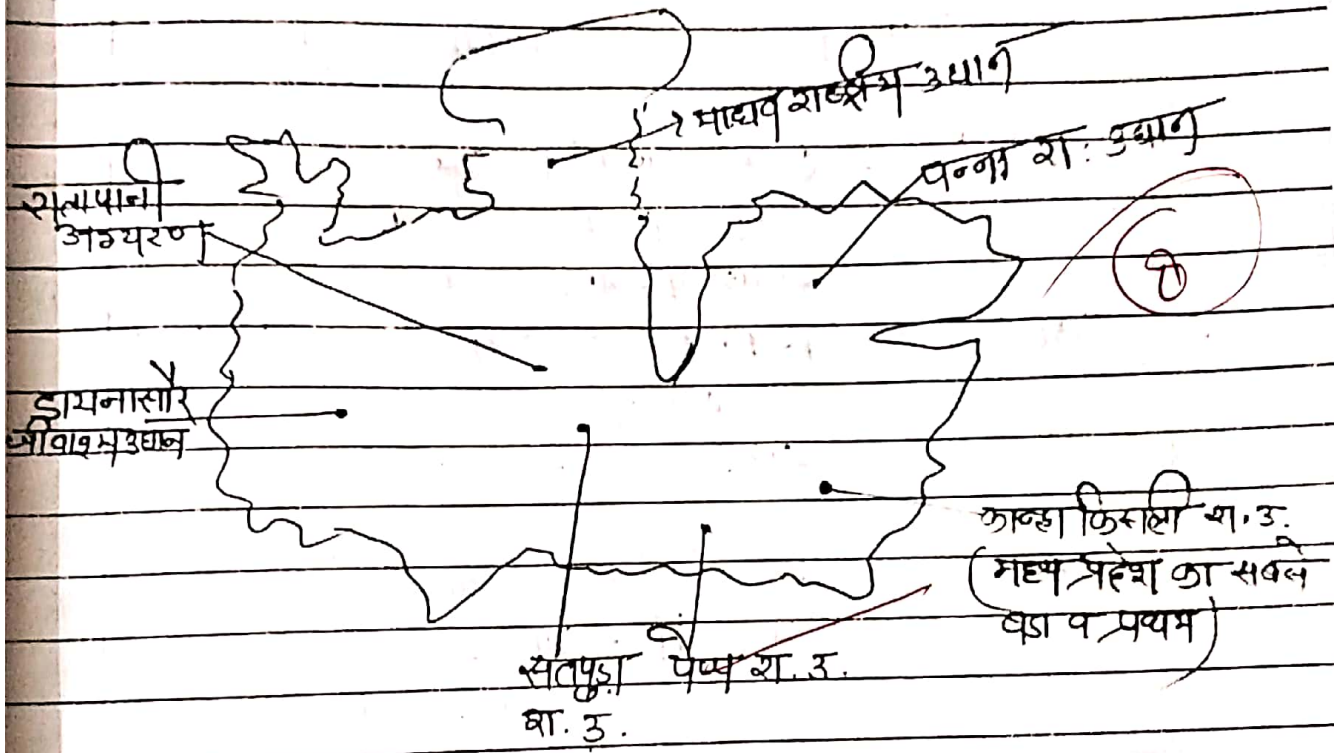 माधव राष्ट्रीय उद्यान
पन्ना रा. उद्यान
रातापानी
अभ्यारण
8
डायनासौर
जीवाश्म उद्यान
कान्हा किसली रा. उ.
(मध्य प्रदेश का सबसे
बडा व प्रथम)
सतपुड़ा
रा. उ.
पेंच रा. उ.